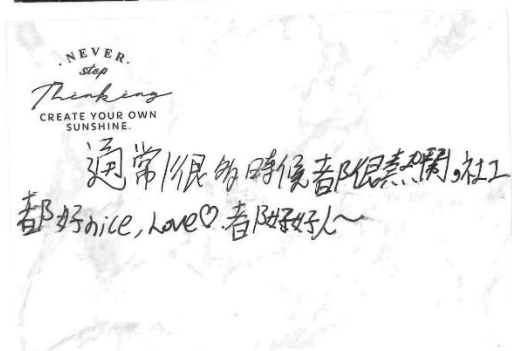 NEVER
stop
Thinking
CREATE YOUR OWN
SUNSHINE.
通常/很多時候都很熱鬧,社工
都好nice, Love♡.都好好人~